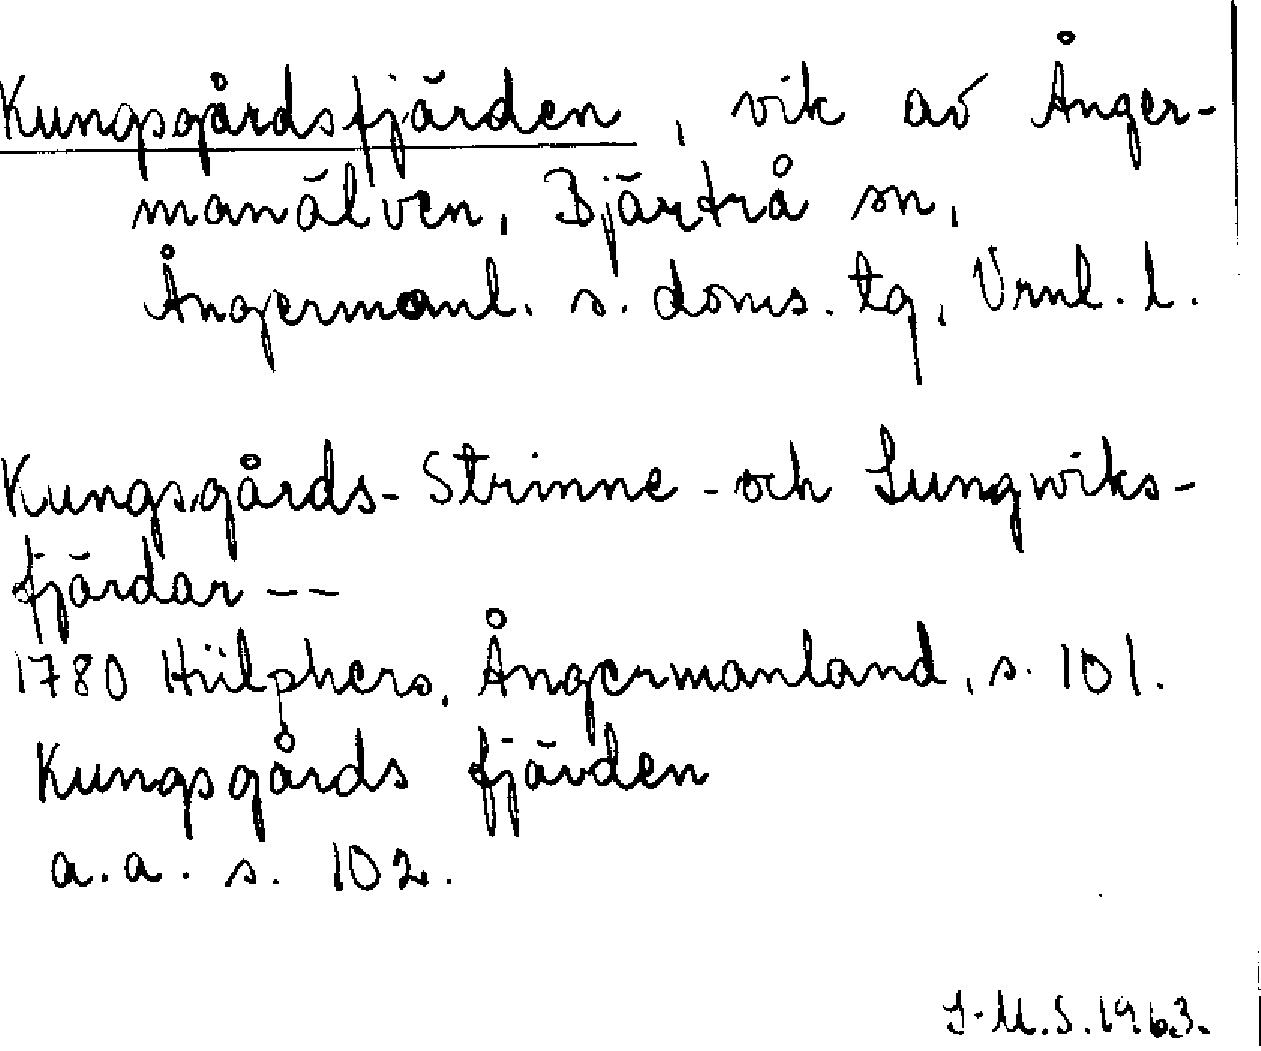 Kungsgårdsfjärden, vik av Ånger-
manälven, Bjärtrå sn,
Ångermanl. s. doms. tg, Vrnl. l.
Kungsgårds- Strinne - och Lungwiks-
fjärdar --
1780 Hülphers, Ångermanland, s. 101.
Kungsgårds fjärden
a.a. s. 102.
I-M.S. 1963.